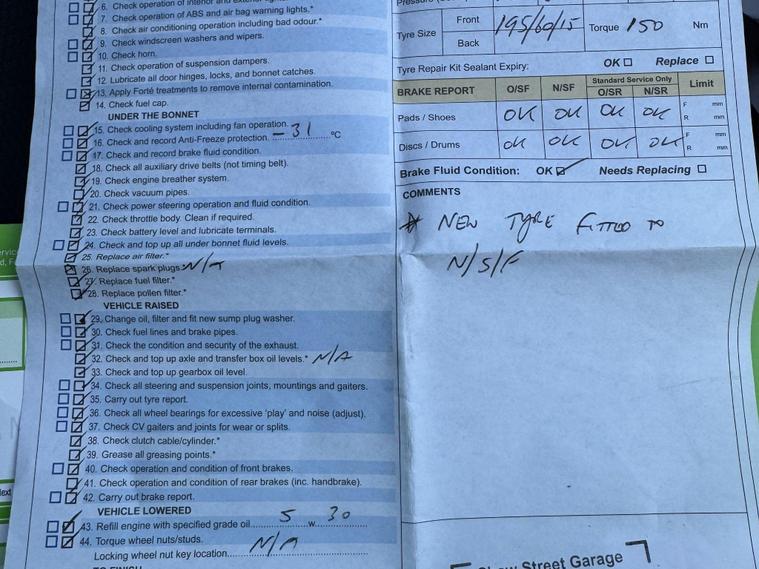 6. Check operation of interior and exterior
7. Check operation of ABS and air bag warning lights.*
8. Check air conditioning operation including bad odour.*
9. Check windscreen washers and wipers.
10. Check horn.
11. Check operation of suspension dampers.
12. Lubricate all door hinges, locks, and bonnet catches.
13. Apply Forté treatments to remove internal contamination.
14. Check fuel cap.
UNDER THE BONNET
15. Check cooling system including fan operation.
16. Check and record Anti-Freeze protection. -31 °C
17. Check and record brake fluid condition.
18. Check all auxiliary drive belts (not timing belt).
19. Check engine breather system.
20. Check vacuum pipes.
21. Check power steering operation and fluid condition.
22. Check throttle body. Clean if required.
23. Check battery level and lubricate terminals.
24. Check and top up all under bonnet fluid levels.
25. Replace air filter.*
26. Replace spark plugs. N/A
27. Replace fuel filter.*
28. Replace pollen filter.*
VEHICLE RAISED
29. Change oil, filter and fit new sump plug washer.
30. Check fuel lines and brake pipes.
31. Check the condition and security of the exhaust.
32. Check and top up axle and transfer box oil levels.* N/A
33. Check and top up gearbox oil level.
34. Check all steering and suspension joints, mountings and gaiters.
35. Carry out tyre report.
36. Check all wheel bearings for excessive 'play' and noise (adjust).
37. Check CV gaiters and joints for wear or splits.
38. Check clutch cable/cylinder.*
39. Grease all greasing points.*
40. Check operation and condition of front brakes.
41. Check operation and condition of rear brakes (inc. handbrake).
42. Carry out brake report.
VEHICLE LOWERED
43. Refill engine with specified grade oil 5 w 30
44. Torque wheel nuts/studs.
Locking wheel nut key location N/A
Tyre Size Front 195/60/15 Torque 150 Nm
Back
Tyre Repair Kit Sealant Expiry: OK Replace
BRAKE REPORT O/SF N/SF Standard Service Only O/SR N/SR Limit
Pads / Shoes OK OK OK OK F mm
R mm
Discs / Drums OK OK OK OK F mm
R mm
Brake Fluid Condition: OK Needs Replacing
COMMENTS
* NEW TYRE FITTED TO
N/S/F
Street Garage